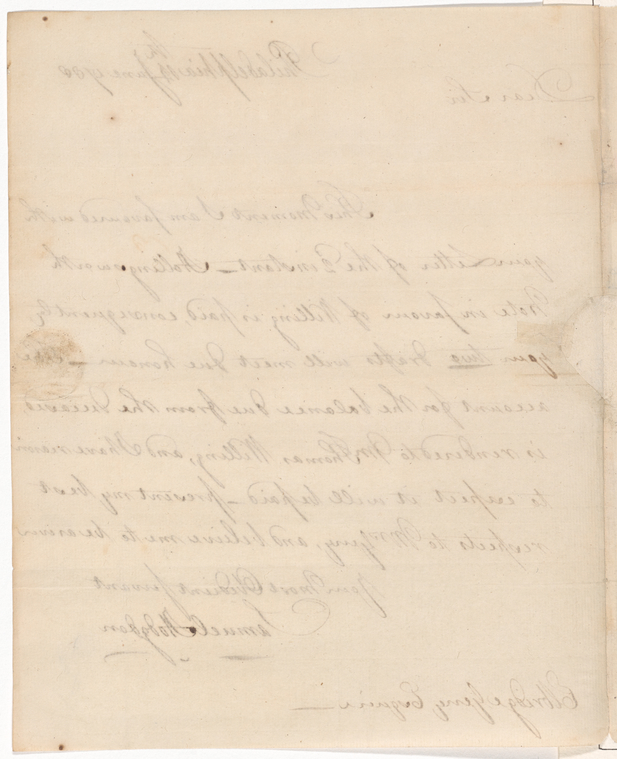 Philadelphia 13th June 1788
Dear Sir
This Moment I am favoured with
your Letter of the 2 instant – Hollingsworth
Note in favour of Willing is paid, consequently
your two Drafts will meet due honour –
account for the balance due from the deceased
is rendered to Mr Thomas Willing, and I have reason
to expect it will be paid – present my best
respects to Mrs Gerry, and believe me to be as ever
Your most Obedient servant
Samuel Hodgdon
Elbridge Gerry Esquire –